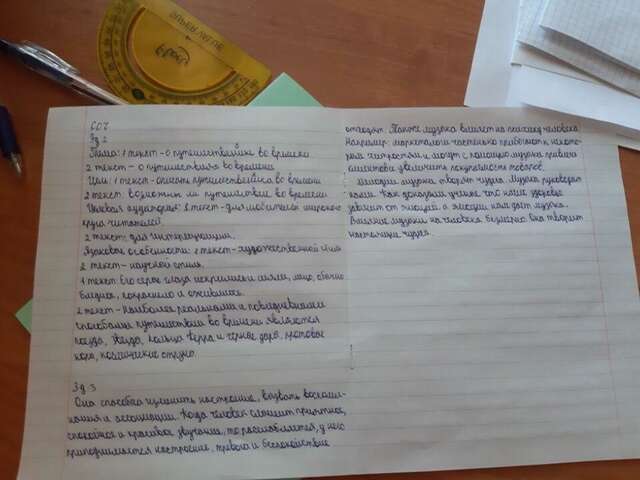 СОЧ
Зд 2
Тема: 1 текст - о путешественнике во времени
2 текст - о путешествиях во времени
Цель: 1 текст - описать путешественника во времени
2 текст: возможны ли путешествие во времени
Целевая аудитория: 1 текст - для любителей широкого
круга читателей.
2 текст: для интересующихся.
Языковые особенности: 1 текст - художественный стиль
2 текст - научный стиль.
1 текст: Его серые глаза искрились и сияли, лицо, обычно
бледное, покраснело и оживилось.
2 текст - Наиболее реальными и
способами путешествий во времени являются
звезда, кольца Керра и черные дыры, кротовые
норы, космические струны.
Зд. 3
Она способна изменить настроение, вызвать воспоми-
нания и ассоциации. Когда человек слышит приятное,
спокойное и красивое звучание, то расслабляется, у него
приподнимается настроение, тревога и беспокойствие
отходят. Также музыка влияет на психику человека.
Например: маркетологи частенько прибегают к некото-
рым хитростям и могут с помощью музыки
увеличить покупаемость товаров.
Мелодии музыки творят чудеса. Музыка руководит
нами. Как доказали ученые, что наше здоровье
зависит от эмоций, а эмоции нам дает музыка.
Влияние музыки на человека безмерно. Она творит
настоящие чудеса.